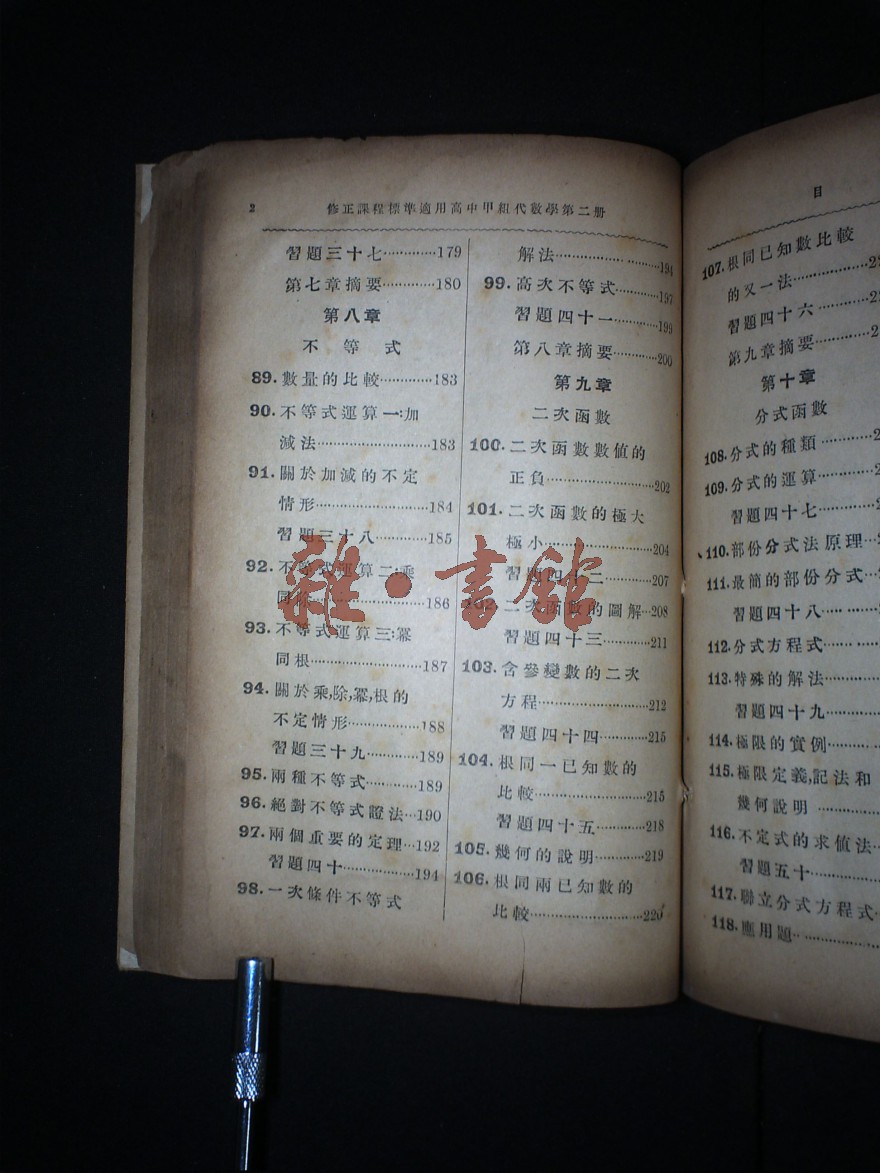 2 修正課程標準適用高中甲組代數學第二册
習題三十七…………179
第七章摘要…………180
第八章
不等式
89.數量的比較…………183
90.不等式運算一:加
減法…………183
91.關於加減的不定
情形…………184
習題三十八…………185
92.不等式運算二:乘
同除…………186
93.不等式運算三:冪
同根…………187
94.關於乘,除,冪,根的
不定情形…………188
習題三十九…………189
95.兩種不等式…………189
96.絕對不等式證法…190
97.兩個重要的定理…192
習題四十…………194
98.一次條件不等式
解法…………194
99.高次不等式…………197
習題四十一…………199
第八章摘要…………200
第九章
二次函數
100.二次函數數值的
正負…………202
101.二次函數的極大
極小…………204
習題四十二…………207
102.二次函數的圖解…208
習題四十三…………211
103.含參變數的二次
方程…………212
習題四十四…………215
104.根同一已知數的
比較…………215
習題四十五…………218
105.幾何的說明…………219
106.根同兩已知數的
比較…………220
目
107.根同已知數比較
的又一法…………
習題四十六…………
第九章摘要…………
第十章
分式函數
108.分式的種類…………
109.分式的運算…………
習題四十七…………
110.部份分式法原理…
111.最簡的部份分式…
習題四十八…………
112.分式方程式…………
113.特殊的解法…………
習題四十九…………
114.極限的實例…………
115.極限定義,記法和
幾何說明…………
116.不定式的求值法…
習題五十…………
117.聯立分式方程式…
118.應用題…………
雜·書館